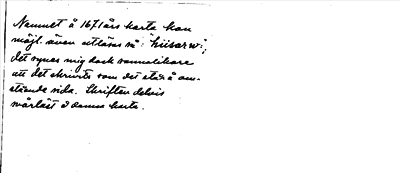 Namnet å 1671 års karta kan
möjl. även utläsas så: "hüsarw:",
det synes mig dock sannolikare
att det skrivits som det står å om-
stående sida. Skriften delvis
svårläst å denna karta.